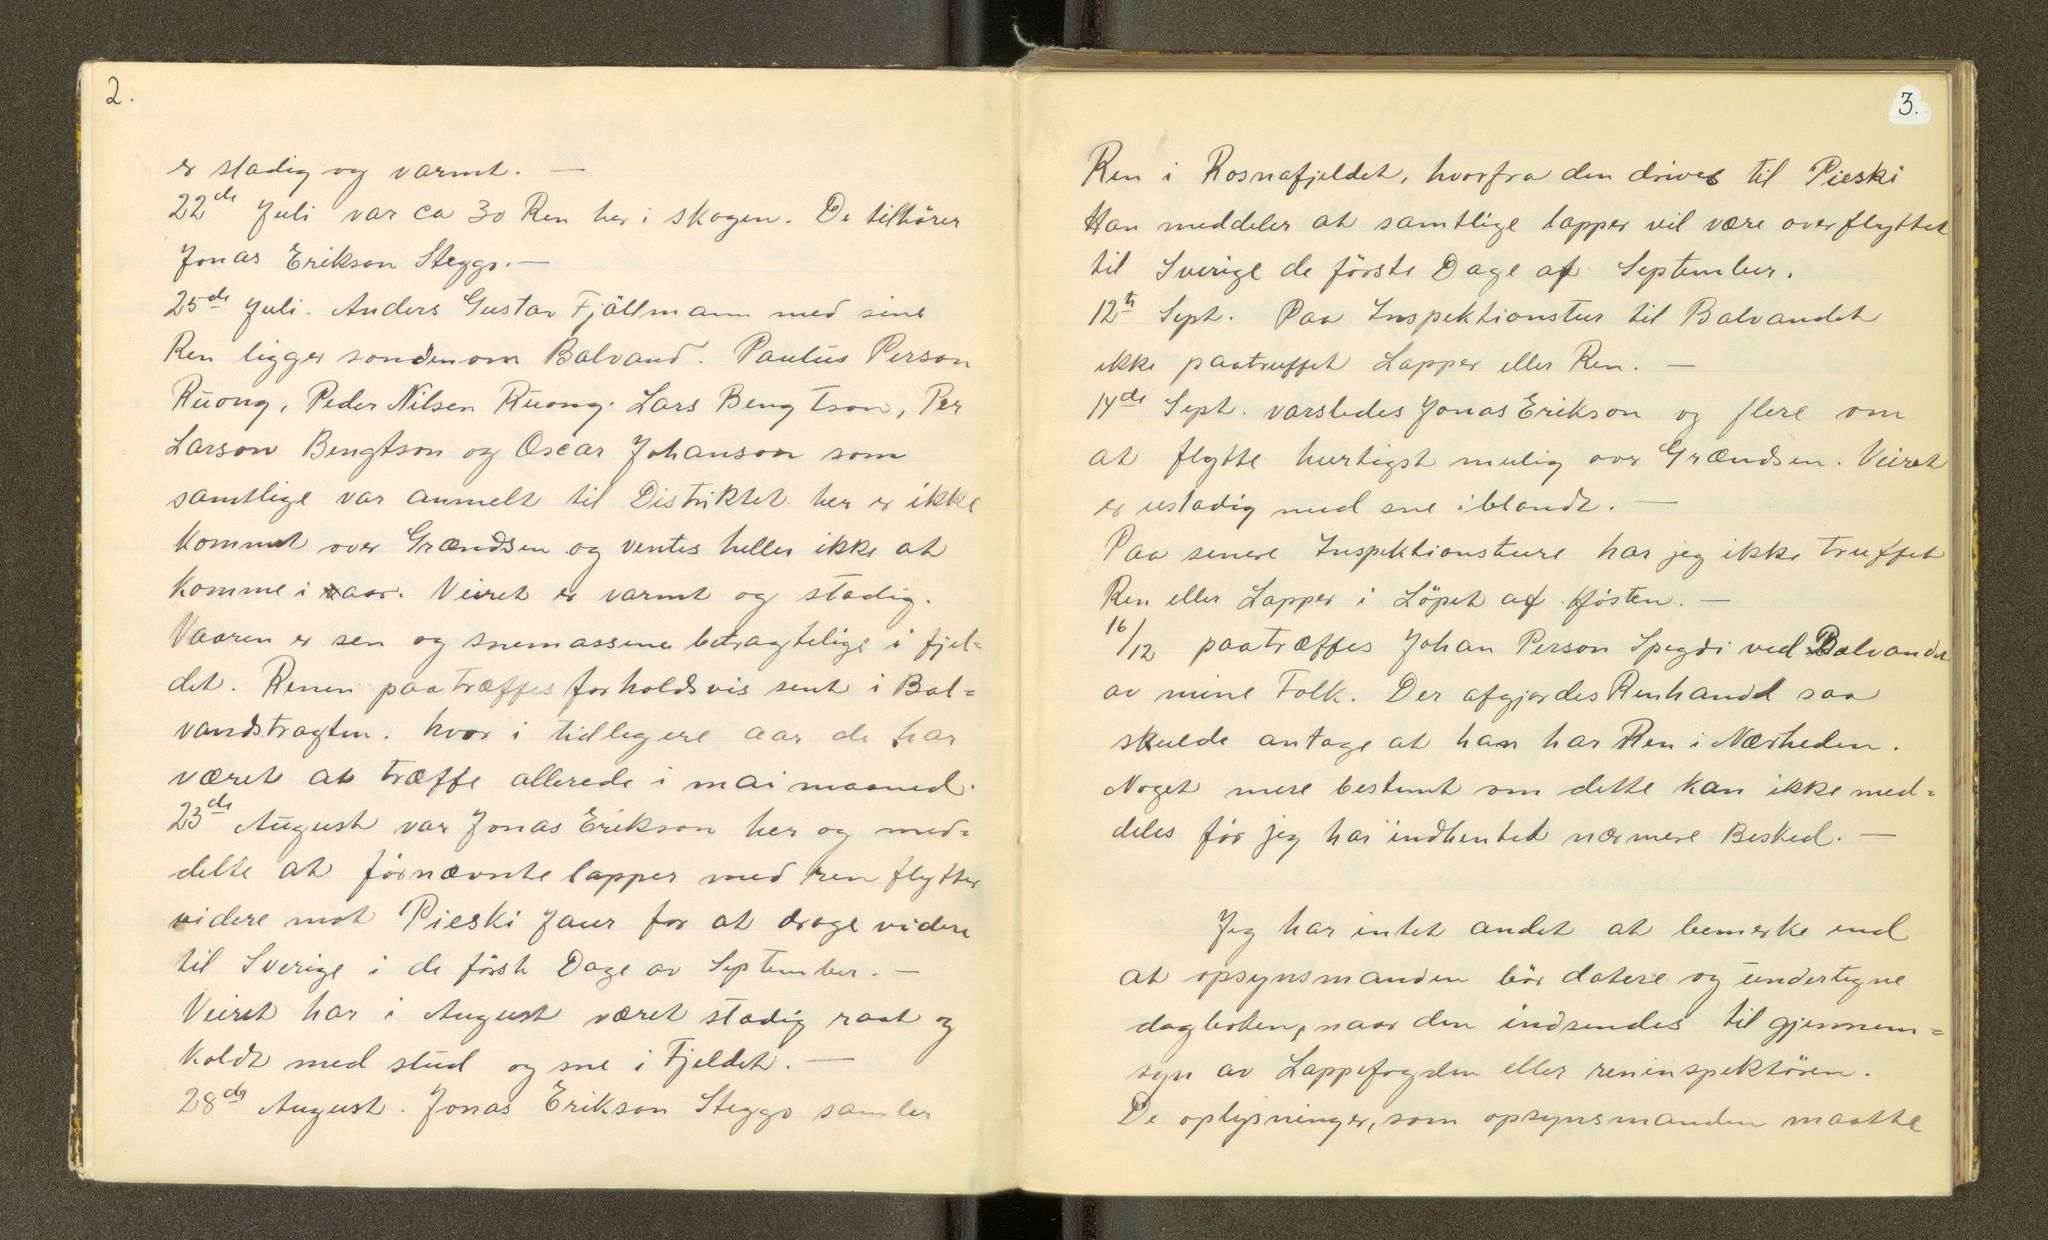 2.
er stadig og varmt. —
22de Juli var ca 30 Ren her i skogen. De tilhörer
Jonas Erikson Steggo. —
25de Juli. Anders Gustav Fjällmann med sine
Ren ligger söndenom Balvand. Paulus Person
Ruong, Peder Nilsen Ruong. Lars Bengtson, Per
Larson Bengtson og Oscar Johanson som
samtlige var anmelt til Distriktet her er ikke
kommet over Grændsen og ventes heller ikke at
komme i aar. Veiret er varmt og stadig.
Vaaren er sen og snemassene betragtelige i fjel=
det. Renen paatræffes forholdsvis sent i Bal=
vandstragten. hvor i tidligere aar de har
været at træffe allerede i mai maaned.
23de August var Jonas Erikson her og med=
delte at förnævnte lapper med ren flytter
videre mot Pieski Jaur for at drage videre
til Sverige i de förste Dage av September. —
Veiret har i August været stadig raat og
koldt med slud og sne i Fjeldet. —
28de August. Jonas Erikson Steggo samler
3.
Ren i Rosnafjeldet, hvorfra den drives til Pieski
Han meddeler at samtlige lapper vil være overflyttet
til Sverige de förste Dage af September.
12te Sept. Paa Inspektionstur til Balvandet
ikke paatruffet Lapper eller Ren. —
14de Sept. varsledes Jonas Erikson og flere om
at flytte hurtigst mulig over Grændsen. Veiret
er ustadig med sne iblandt. —
Paa senere Inspektionsture har jeg ikke truffet
Ren eller Lapper i Löpet af Hösten. —
16/12 paatræffes Johan Person Spegdi ved Balvandet
av mine Folk. Der afgjordes Renhandel saa
skulde antage at han har Ren i Nærheden.
Noget mere bestemt om dette kan ikke med=
deles för jeg har indhentet nærmere Besked. —
Jeg har intet andet at bemerke end
at opsynsmanden bör datere og undertegne
dagboken, naar den indsendes til gjennem=
syn av Lappefogden eller reninspektören.
De oplysninger, som opsynsmanden maatte